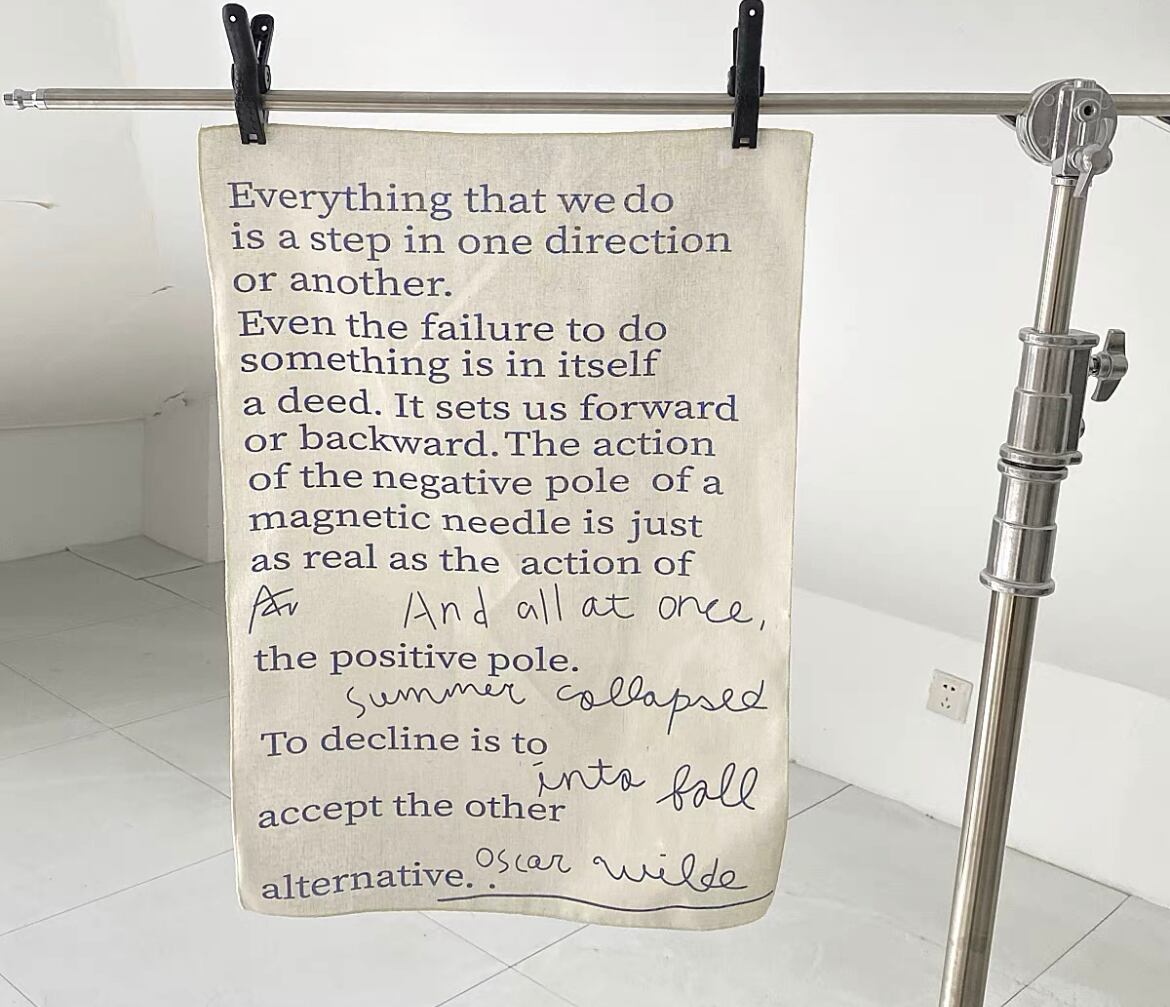 Everything that we do
is a step in one direction
or another.
Even the failure to do
something is in itself
a deed. It sets us forward
or backward. The action
of the negative pole of a
magnetic needle is just
as real as the action of
And all at once,
the positive pole.
summer collapsed
To decline is to
into fall
accept the other
Oscar Wilde
alternative. .